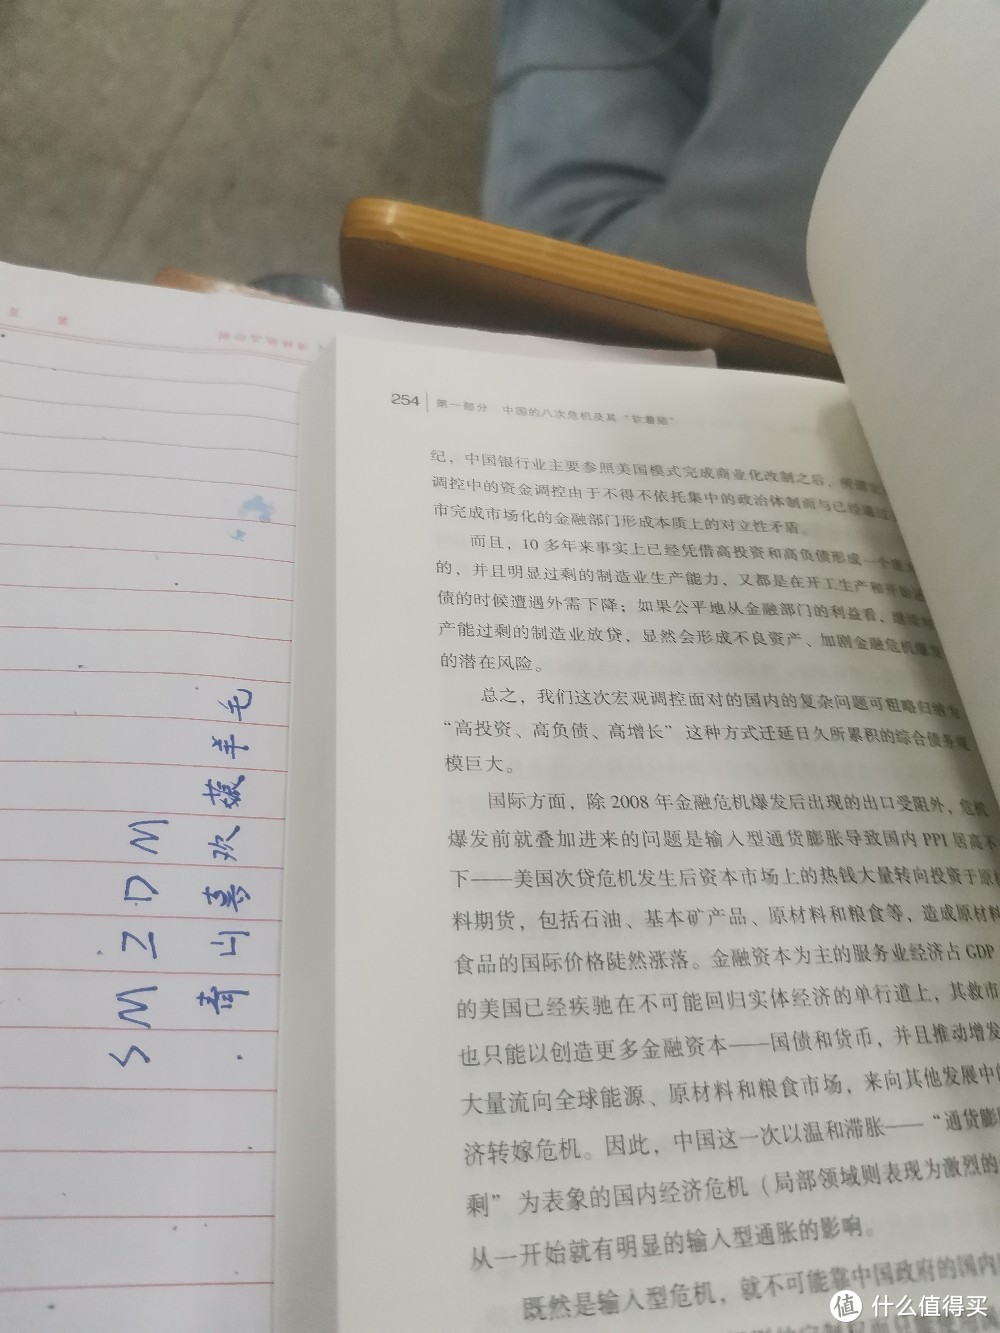 254 第一部分 中国的八次危机及其“软着陆”
纪，中国银行业主要参照美国模式完成商业化改制之后，所谓宏
调控中的资金调控由于不得不依托集中的政治体制而与已经通过
市完成市场化的金融部门形成本质上的对立性矛盾。
而且，10 多年来事实上已经凭借高投资和高负债形成一个庞大
的，并且明显过剩的制造业生产能力，又都是在开工生产和开始还
债的时候遭遇外需下降；如果公平地从金融部门的利益看，继续对
产能过剩的制造业放贷，显然会形成不良资产、加剧金融危机爆发
的潜在风险。
总之，我们这次宏观调控面对的国内的复杂问题可粗略归结为
“高投资、高负债、高增长”这种方式迁延日久所累积的综合债务规
模巨大。
国际方面，除 2008 年金融危机爆发后出现的出口受阻外，危机
爆发前就叠加进来的问题是输入型通货膨胀导致国内 PPI 居高不
下——美国次贷危机发生后资本市场上的热钱大量转向投资于原材
料期货，包括石油、基本矿产品、原材料和粮食等，造成原材料
食品的国际价格陡然涨落。金融资本为主的服务业经济占 GDP
的美国已经疾驰在不可能回归实体经济的单行道上，其救市
也只能以创造更多金融资本——国债和货币，并且推动增发
大量流向全球能源、原材料和粮食市场，来向其他发展中
济转嫁危机。因此，中国这一次以温和滞胀——“通货膨
剩”为表象的国内经济危机（局部领域则表现为激烈的
从一开始就有明显的输入型通胀的影响。
既然是输入型危机，就不可能靠中国政府的国内
SMZDM
青山喜欢薅羊毛
值 什么值得买